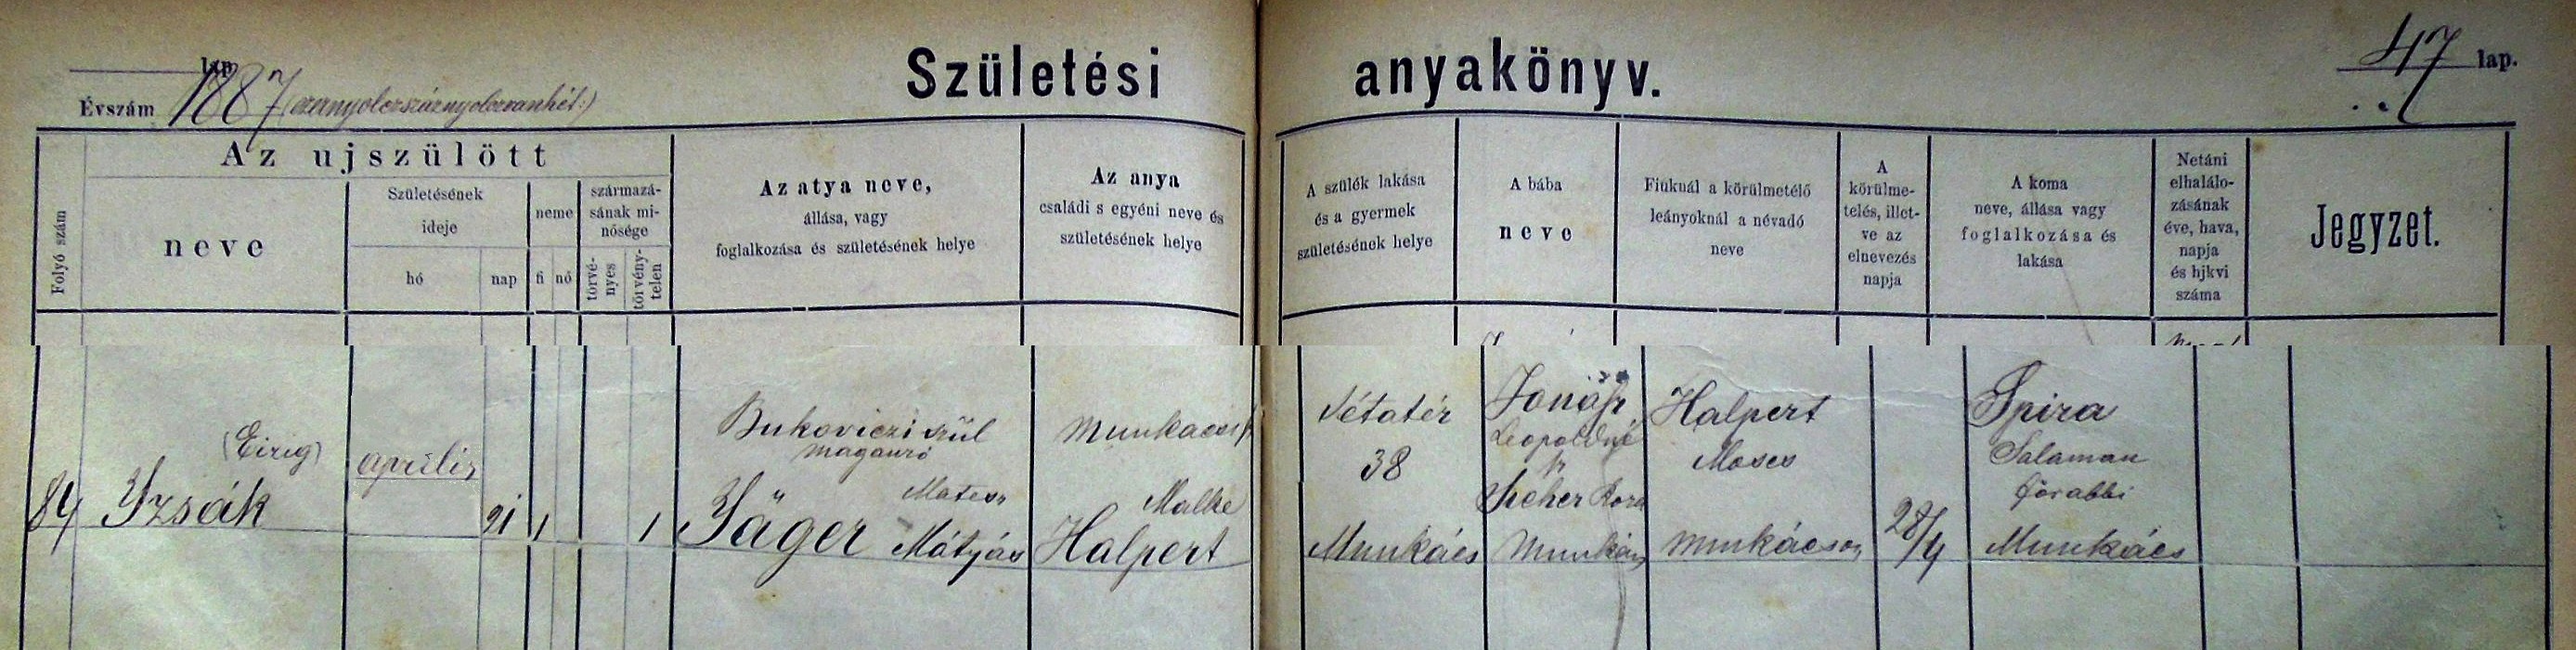 lap
Évszám 1887 (ezernyolczszáznyolczvanhét:)
Születési anyakönyv.
47 lap.
Folyó szám
Az ujszülött
neve
Születésének
ideje
hó
nap
neme
fi
nő
származá-
sának mi-
nősége
törvé-
nyes
törvény-
telen
Az atya neve,
állása, vagy
foglalkozása és születésének helye
Az anya
családi s egyéni neve és
születésének helye
A szülék lakása
és a gyermek
születésének helye
A bába
neve
Fiúknál a körülmetélő
leányoknál a névadó
neve
A
körülme-
telés, illet-
ve az
elnevezés
napja
A koma
neve, állása vagy
foglalkozása és
lakása
Netáni
elhalálo-
zásának
éve, hava,
napja
és hjkvi
száma
Jegyzet.
84
(Eizig)
Yzsák
április
21
1
1
Bukoviczi szül
magánzó
Jäger
Mátyás
Munkácsi
Malke
Halpert
Vétatér
38
Munkács
Jonás
Leopoldné
Munkács
Halpert
Moses
Munkácson
28/4
Spira
Salaman
főrabbi
Munkács